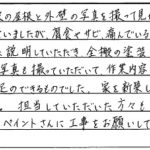 の屋根と外壁の写真を撮って見
ていましたが、腐食やサビ、痛んでいる
説明していただき、全般の塗装
写真も撮っていただいて、作業内容
足のできるものでした。家を新築し
担当していただいた方々も
ペイントさんに工事をお願いして